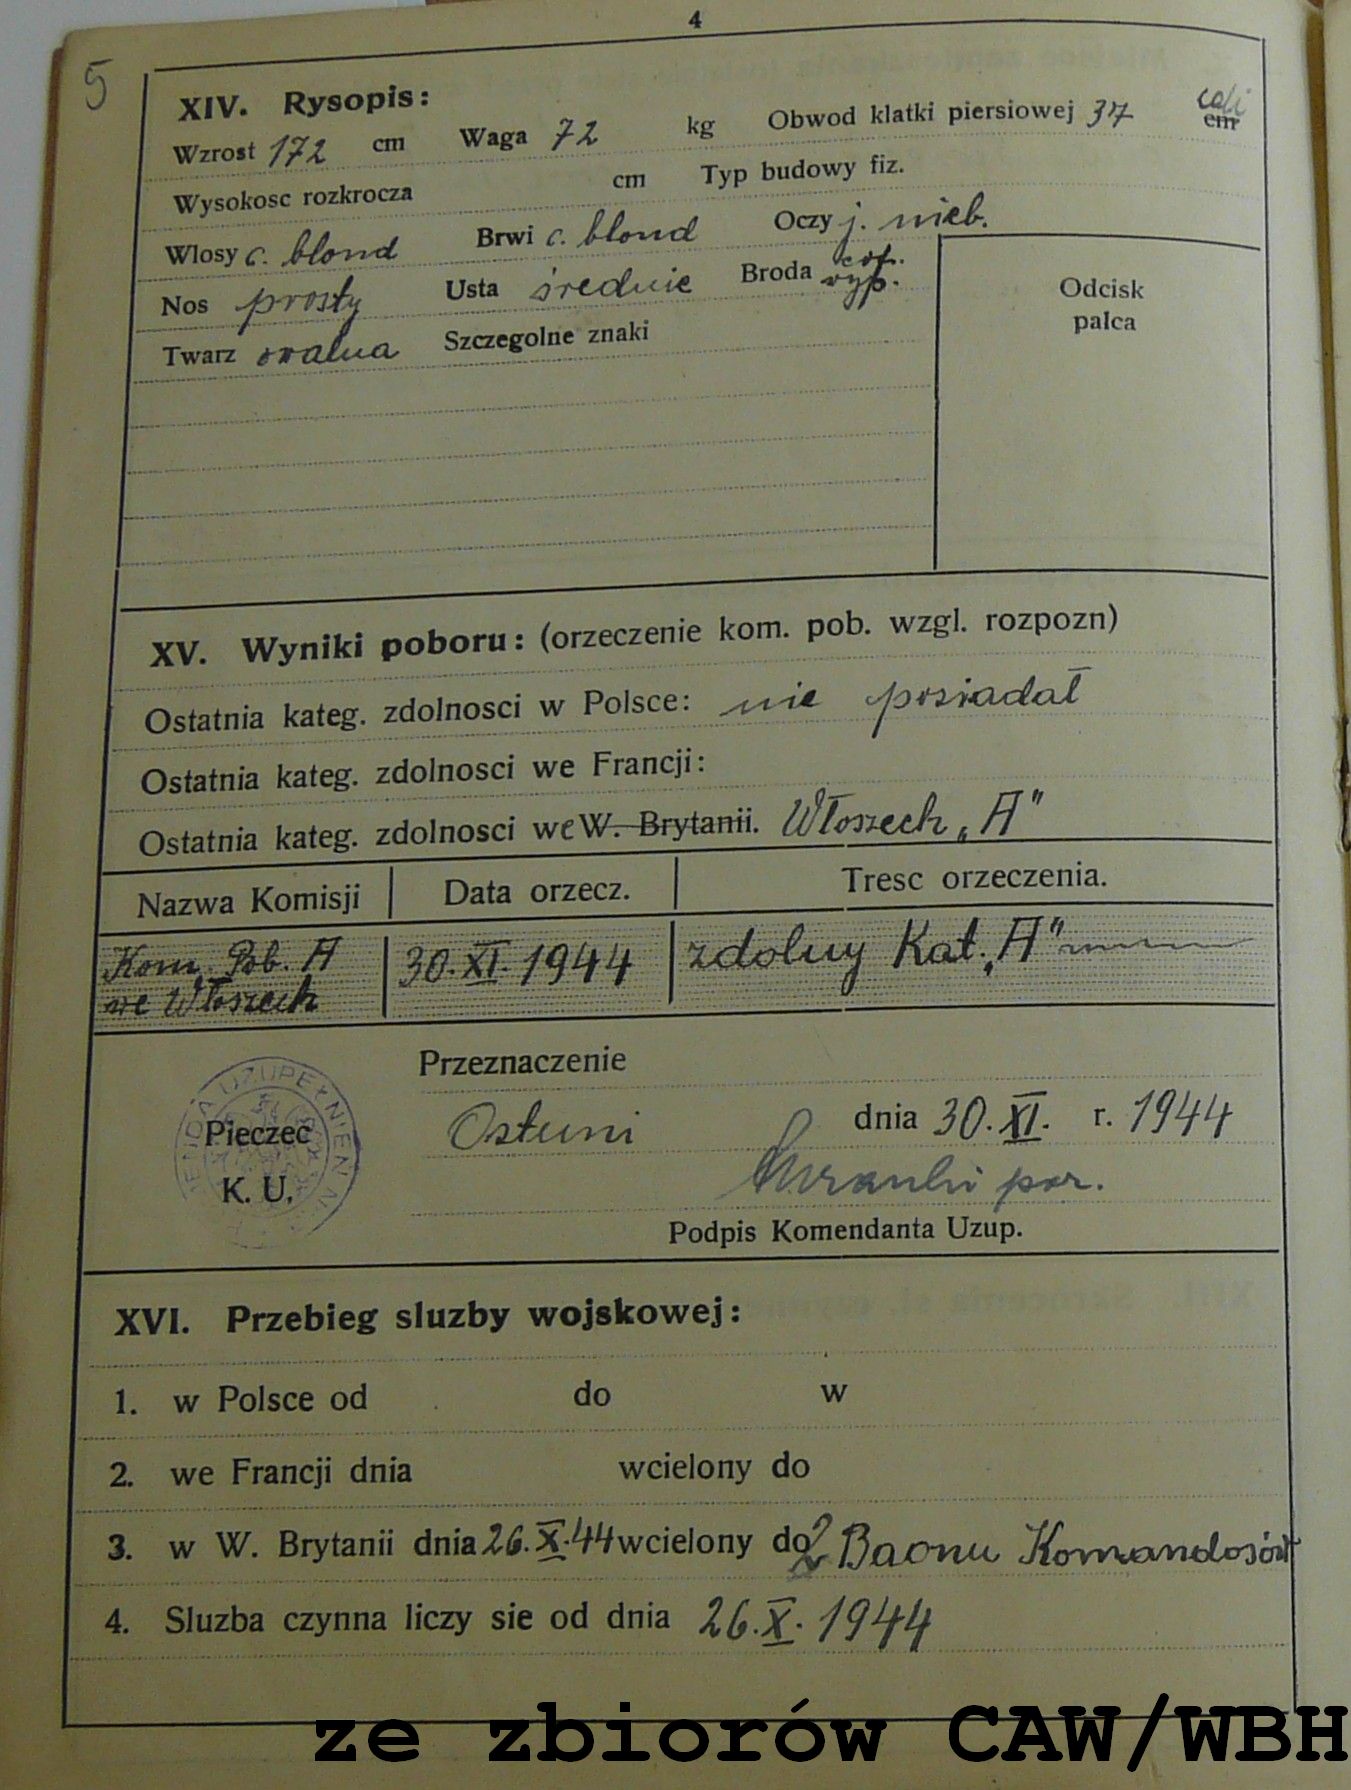 4
5
XIV. Rysopis:
Wzrost 172 cm Waga 72 kg Obwod klatki piersiowej 37 cali cm
Wysokosc rozkrocza cm Typ budowy fiz.
Wlosy c. blond Brwi c. blond Oczy j. nieb.
Nos prosty Usta średnie Broda cof. wyp.
Twarz owalna Szczegolne znaki
Odcisk
palca
XV. Wyniki poboru: (orzeczenie kom. pob. wzgl. rozpozn)
Ostatnia kateg. zdolnosci w Polsce: nie posiadał
Ostatnia kateg. zdolnosci we Francji:
Ostatnia kateg. zdolnosci we W. Brytanii. Włoszech „A"
Nazwa Komisji Data orzecz. Tresc orzeczenia.
Kom. Pob. A 30.XI.1944 zdolny Kat. „A"
we Włoszech
Przeznaczenie
UZUPEŁNIEŃ
Pieczec
K. U.
Ostuni dnia 30.XI. r. 1944
por.
Podpis Komendanta Uzup.
XVI. Przebieg sluzby wojskowej:
1. w Polsce od do w
2. we Francji dnia wcielony do
3. w W. Brytanii dnia 26.X.44 wcielony do 2 Baonu Komandosów
4. Sluzba czynna liczy sie od dnia 26.X.1944
ze zbiorów CAW/WBH